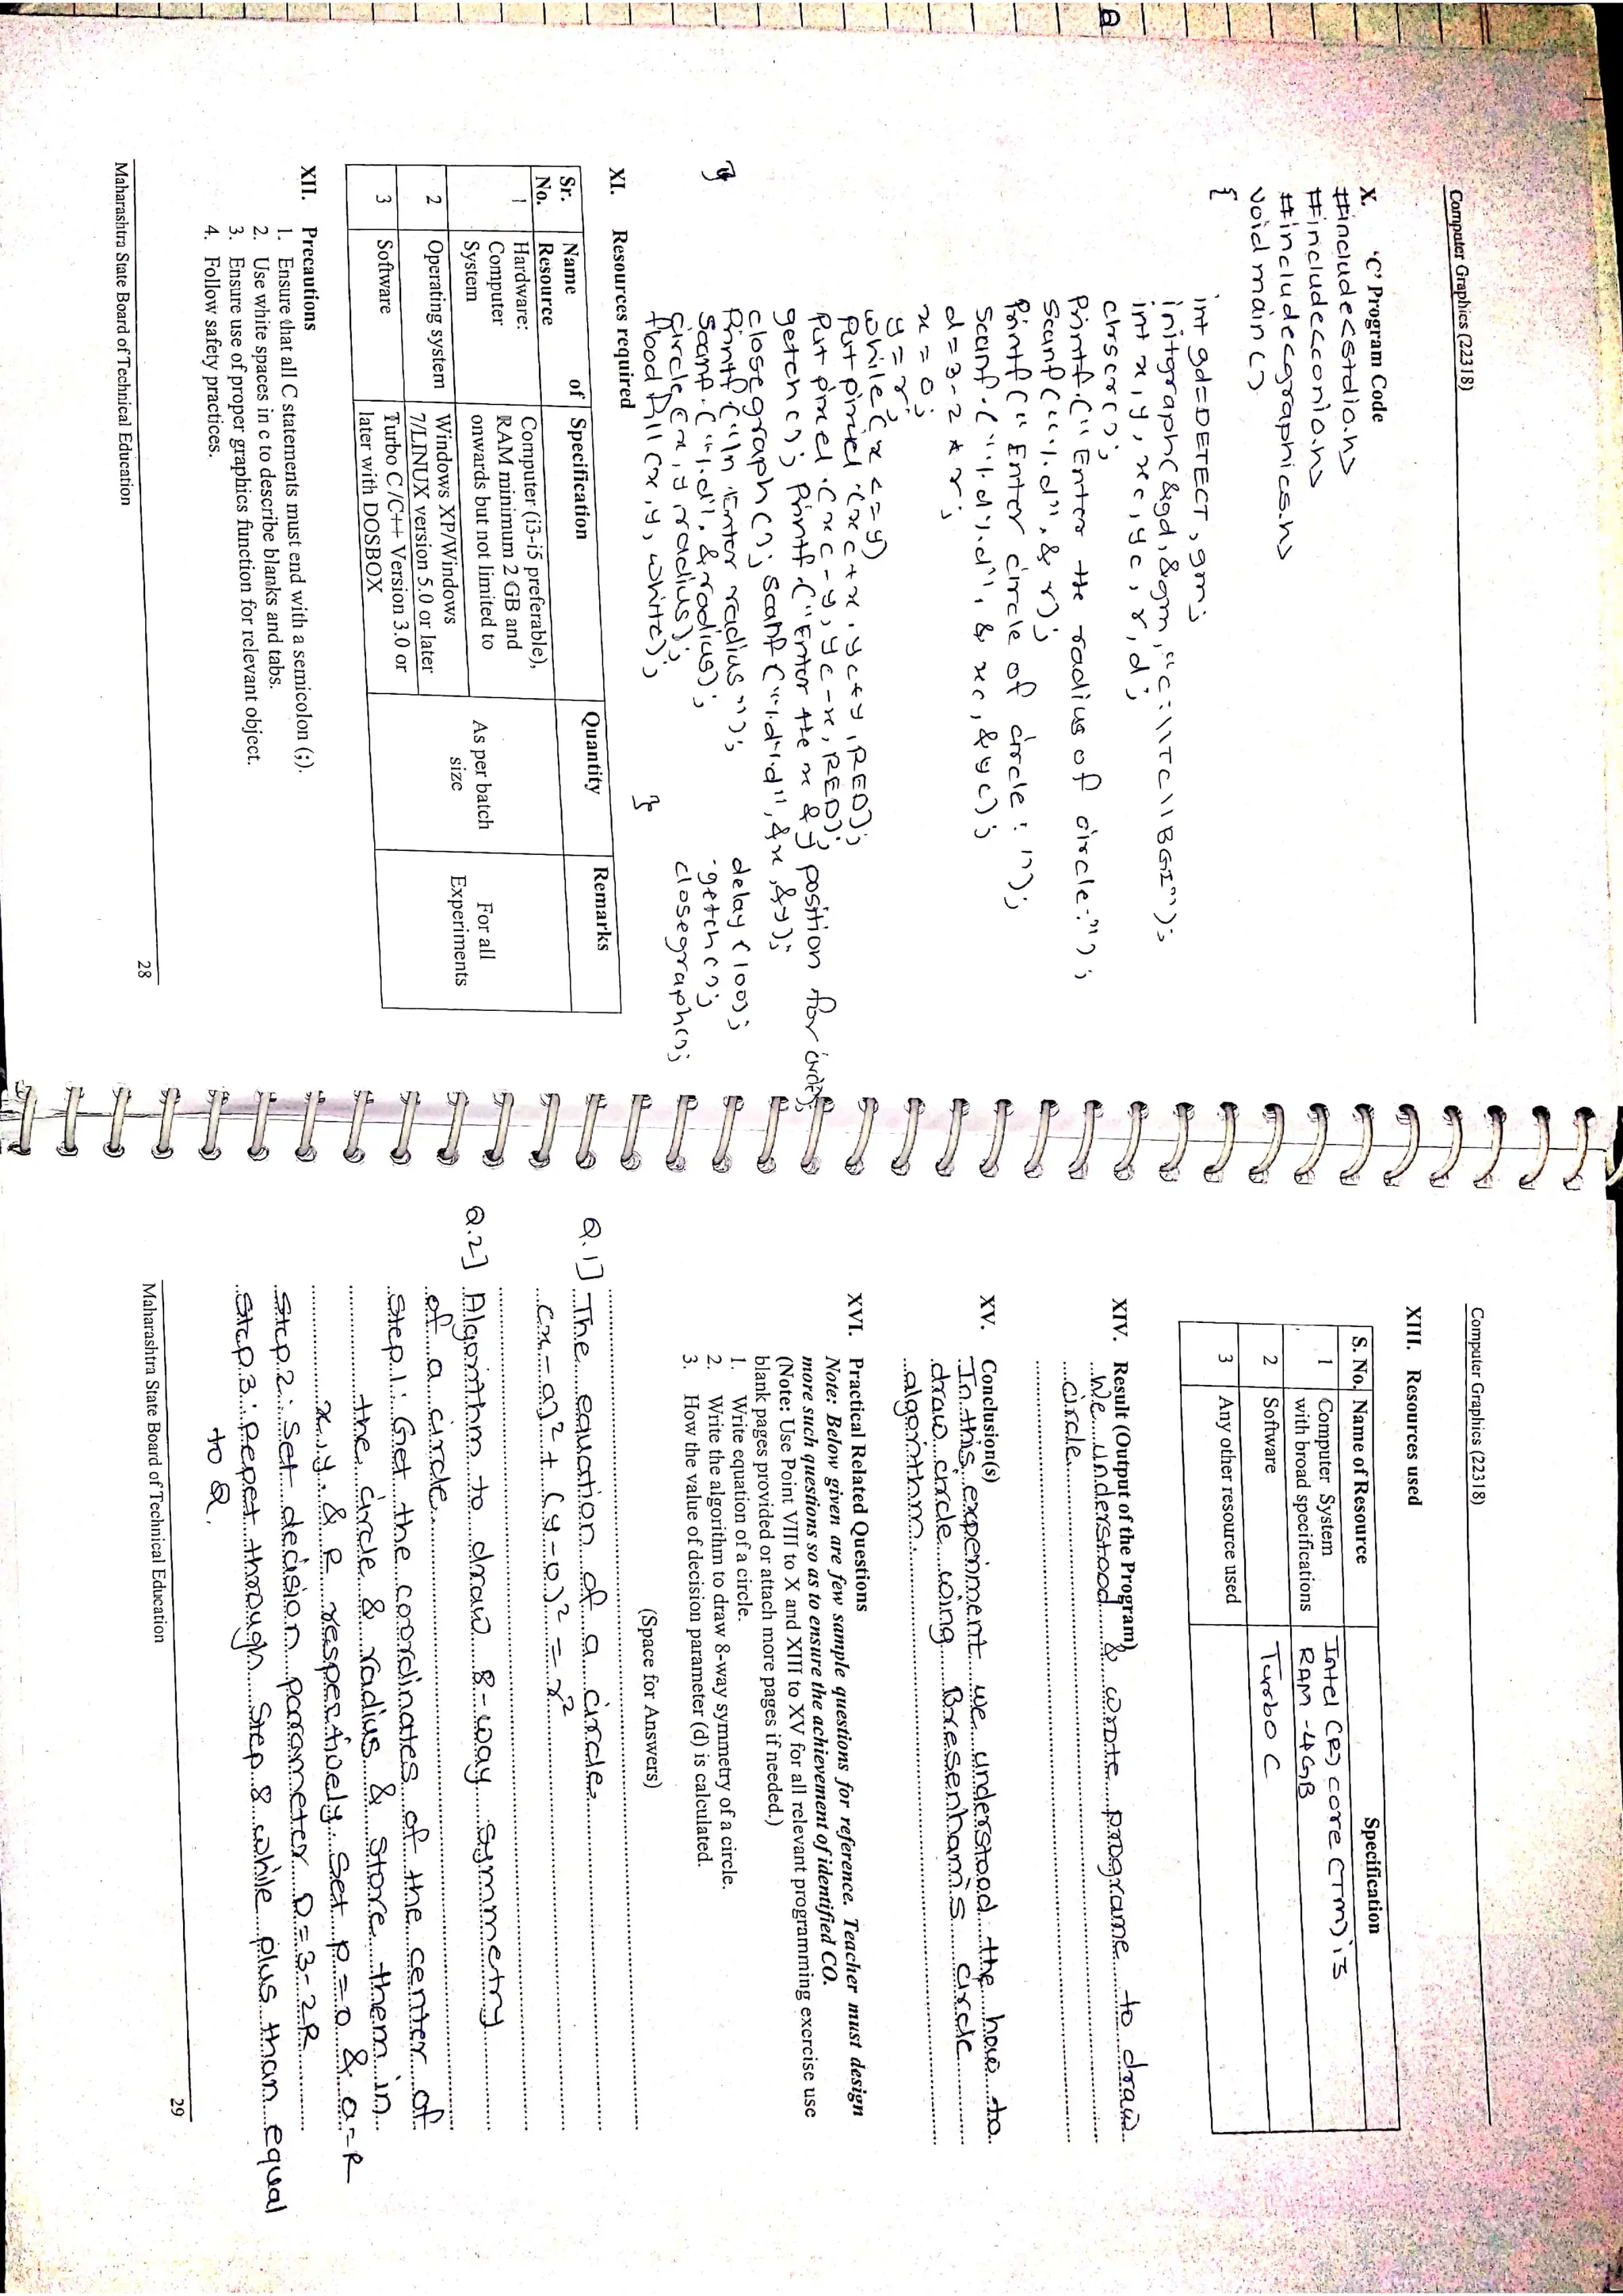 Computer Graphics (22318)
X. 'C' Program Code
#include<stdio.h>
#include<conio.h>
#include<graphics.h>
void main()
{
int gd=DETECT,gm;
initgraph(&gd,&gm,"c:\\TC\\BGI");
int x,y,xc,yc,r,d;
clrscr();
Printf("Enter the radius of circle:");
Scanf("%d",&r);
Printf("Enter circle of circle:");
Scanf("%d%d",&xc,&yc);
d=3-2*r;
x=0;
y=r;
while(x<=y)
Putpixel(xc+x,yc+y,RED);
Putpixel(xc-y,yc-x,RED);
getch(); Printf("Enter the x & y position for
closegraph(); Scanf("%d%d",&x,&y);
Printf("\n Enter radius"); delay(100);
Scanf("%d",&radius); getch();
Circle(x,y,radius); closegraph();
flood fill(x,y,white);
}
}
XI. Resources required
Sr. No. Name of Resource Specification Quantity Remarks
1 Hardware: Computer System Computer (i3-i5 preferable), RAM minimum 2 GB and onwards but not limited to As per batch size For all Experiments
2 Operating system Windows XP/Windows 7/LINUX version 5.0 or later
3 Software Turbo C /C++ Version 3.0 or later with DOSBOX
XII. Precautions
1. Ensure that all C statements must end with a semicolon (;).
2. Use white spaces in c to describe blanks and tabs.
3. Ensure use of proper graphics function for relevant object.
4. Follow safety practices.
Maharashtra State Board of Technical Education 28
Computer Graphics (22318)
XIII. Resources used
S. No. Name of Resource Specification
1 Computer System with broad specifications Intel (R) core (TM) i3 RAM - 4GB
2 Software Turbo C
3 Any other resource used
XIV. Result (Output of the Program)
We understood & wrote programe to draw
circle
XV. Conclusion(s)
In this experiment we understood the how to
draw circle using Bresenham's circle
algorithm.
XVI. Practical Related Questions
Note: Below given are few sample questions for reference. Teacher must design
more such questions so as to ensure the achievement of identified CO.
(Note: Use Point VIII to X and XIII to XV for all relevant programming exercise use
blank pages provided or attach more pages if needed.)
1. Write equation of a circle.
2. Write the algorithm to draw 8-way symmetry of a circle.
3. How the value of decision parameter (d) is calculated.
(Space for Answers)
Q.1] The equation of a circle
(x-a)²+(y-0)²=r²
Q.2] Algorithm to draw 8-way symmetry
of a circle.
Step 1: Get the coordinates of the center of
the circle & radius & store them in
x,y, & R respectively. Set p=0 & a=R
Step 2: Set decision parameter D=3-2R
Step 3: Repet through Step 8 while plus than equal
to Q.
Maharashtra State Board of Technical Education 29